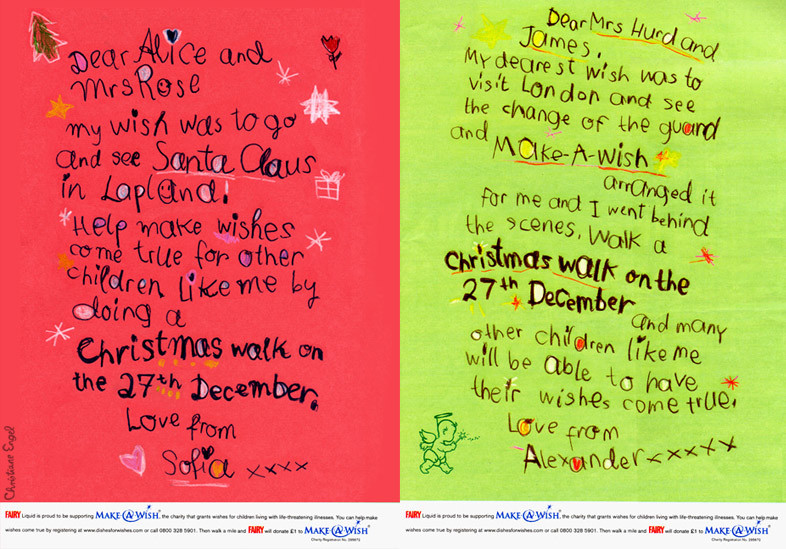 Dear Alice and
Mrs Rose
my wish was to go
and see Santa Claus
in Lapland!
Help make wishes
come true for other
children like me by
doing a
Christmas walk on
the 27th December.
Love from
Sofia xxxx
Christiane Engel
FAIRY Liquid is proud to be supporting MAKE-A-WISH®, the charity that grants wishes for children living with life-threatening illnesses. You can help make
wishes come true by registering at www.dishesforwishes.com or call 0800 328 5901. Then walk a mile and FAIRY will donate £1 to MAKE-A-WISH®
Dear Mrs Hurd and
James,
My dearest wish was to
visit London and see
the change of the guard
and Make-A-Wish
arranged it
for me and I went behind
the scenes. Walk a
Christmas walk on the
27th December
and many
other children like me
will be able to have
their wishes come true.
Love from
Alexander xxxxx
FAIRY Liquid is proud to be supporting MAKE-A-WISH®, the charity that grants wishes for children living with life-threatening illnesses. You can help make
wishes come true by registering at www.dishesforwishes.com or call 0800 328 5901. Then walk a mile and FAIRY will donate £1 to MAKE-A-WISH®